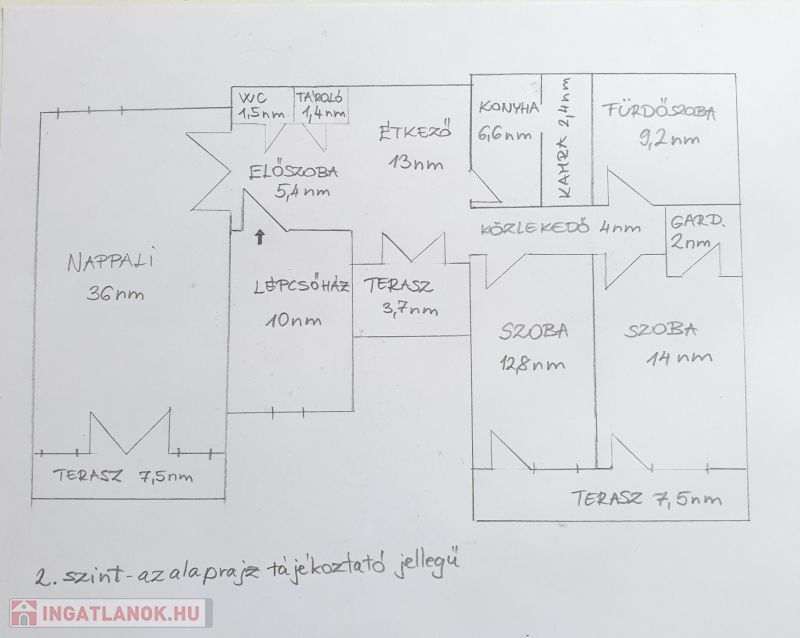 WC
1,5nm
TÁROLÓ
1,4nm
ÉTKEZŐ
13nm
KONYHA
6,6nm
KAMRA 2,4nm
FÜRDŐSZOBA
9,2nm
ELŐSZOBA
5,4nm
KÖZLEKEDŐ 4nm
GARD.
2nm
NAPPALI
36nm
LÉPCSŐHÁZ
10nm
TERASZ
3,7nm
SZOBA
12,8nm
SZOBA
14nm
TERASZ 7,5nm
TERASZ 7,5nm
2. szint-az alaprajz tájékoztató jellegű
INGATLANOK.HU